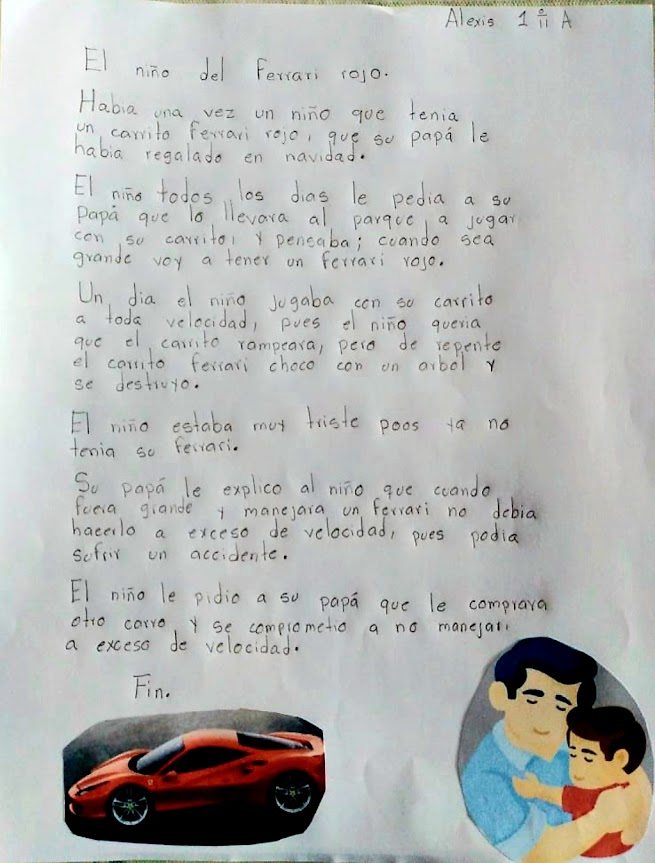 Alexis 1º A
El niño del Ferrari rojo.
Habia una vez un niño que tenia
un carrito Ferrari rojo, que su papá le
habia regalado en navidad.
El niño todos los dias le pedia a su
Papá que lo llevara al parque a jugar
con su carrito, y pensaba; cuando sea
grande voy a tener un ferrari rojo.
Un dia el niño jugaba con su carrito
a toda velocidad, pues el niño queria
que el carrito rampeara, pero de repente
el carrito ferrari choco con un arbol y
se destruyo.
El niño estaba muy triste poos ya no
tenia su ferrari.
Su papá le explico al niño que cuando
fuera grande y manejara un ferrari no debia
hacerlo a exceso de velocidad, pues podia
sufrir un accidente.
El niño le pidio a su papá que le comprava
otro carro y se comprometio a no manejar
a exceso de velocidad.
Fin.